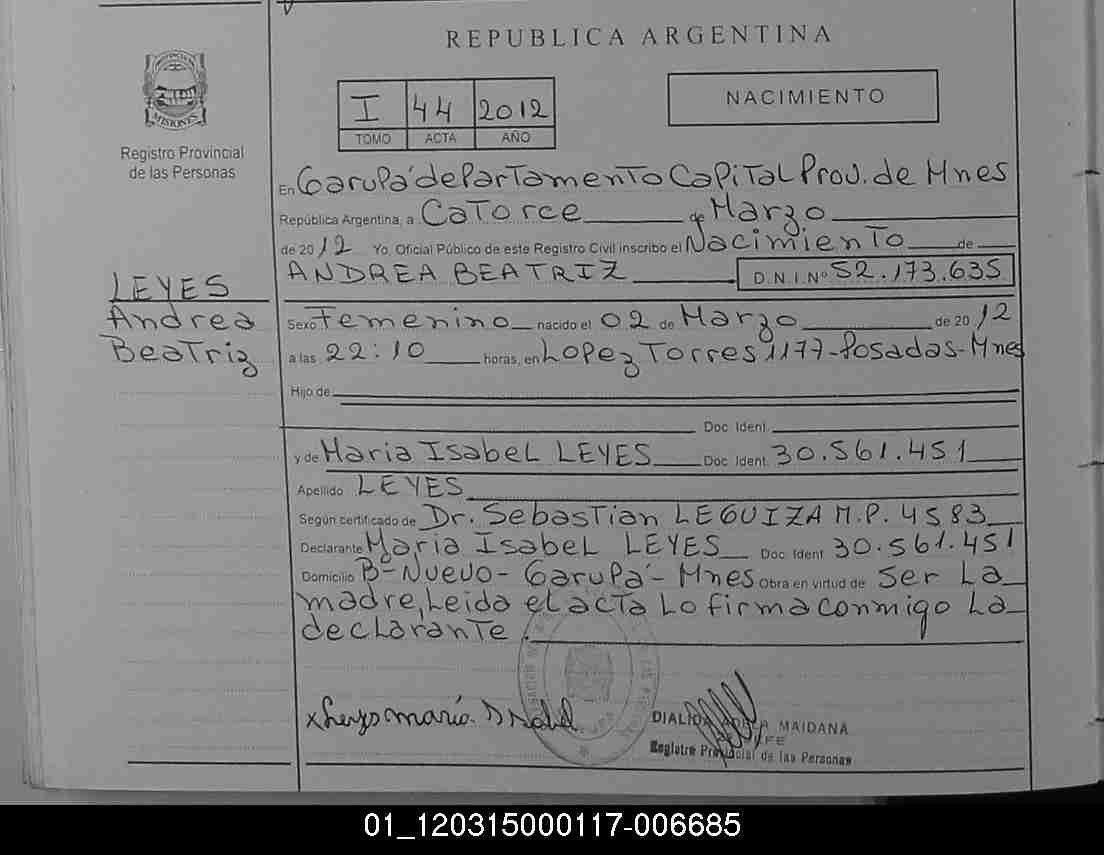 REPUBLICA ARGENTINA
MISIONES
Registro Provincial
de las Personas
I 44 2012
TOMO ACTA AÑO
NACIMIENTO
En Garupá departamento Capital Prov. de Mnes
República Argentina, a Catorce de Marzo
de 2012 Yo, Oficial Público de este Registro Civil inscribo el Nacimiento de
ANDREA BEATRIZ D.N.I. Nº 52.173.635
LEYES
Andrea
Beatriz
Sexo Femenino nacido el 02 de Marzo de 2012
a las 22:10 horas, en Lopez Torres 1177-Posadas-Mnes
Hijo de
Doc. Ident.
y de Maria Isabel LEYES Doc. Ident. 30.561.451
Apellido LEYES
Según certificado de Dr. Sebastian LEGUIZA M.P. 4583
Declarante Maria Isabel LEYES Doc. Ident. 30.561.451
Domicilio Bº Nuevo - Garupá - Mnes Obra en virtud de ser la
madre, Leida el acta Lo firma conmigo La
declarante.
x Leyes maría Isabel
MAIDANA
JEFE
Registro Provincial de las Personas
01_120315000117-006685